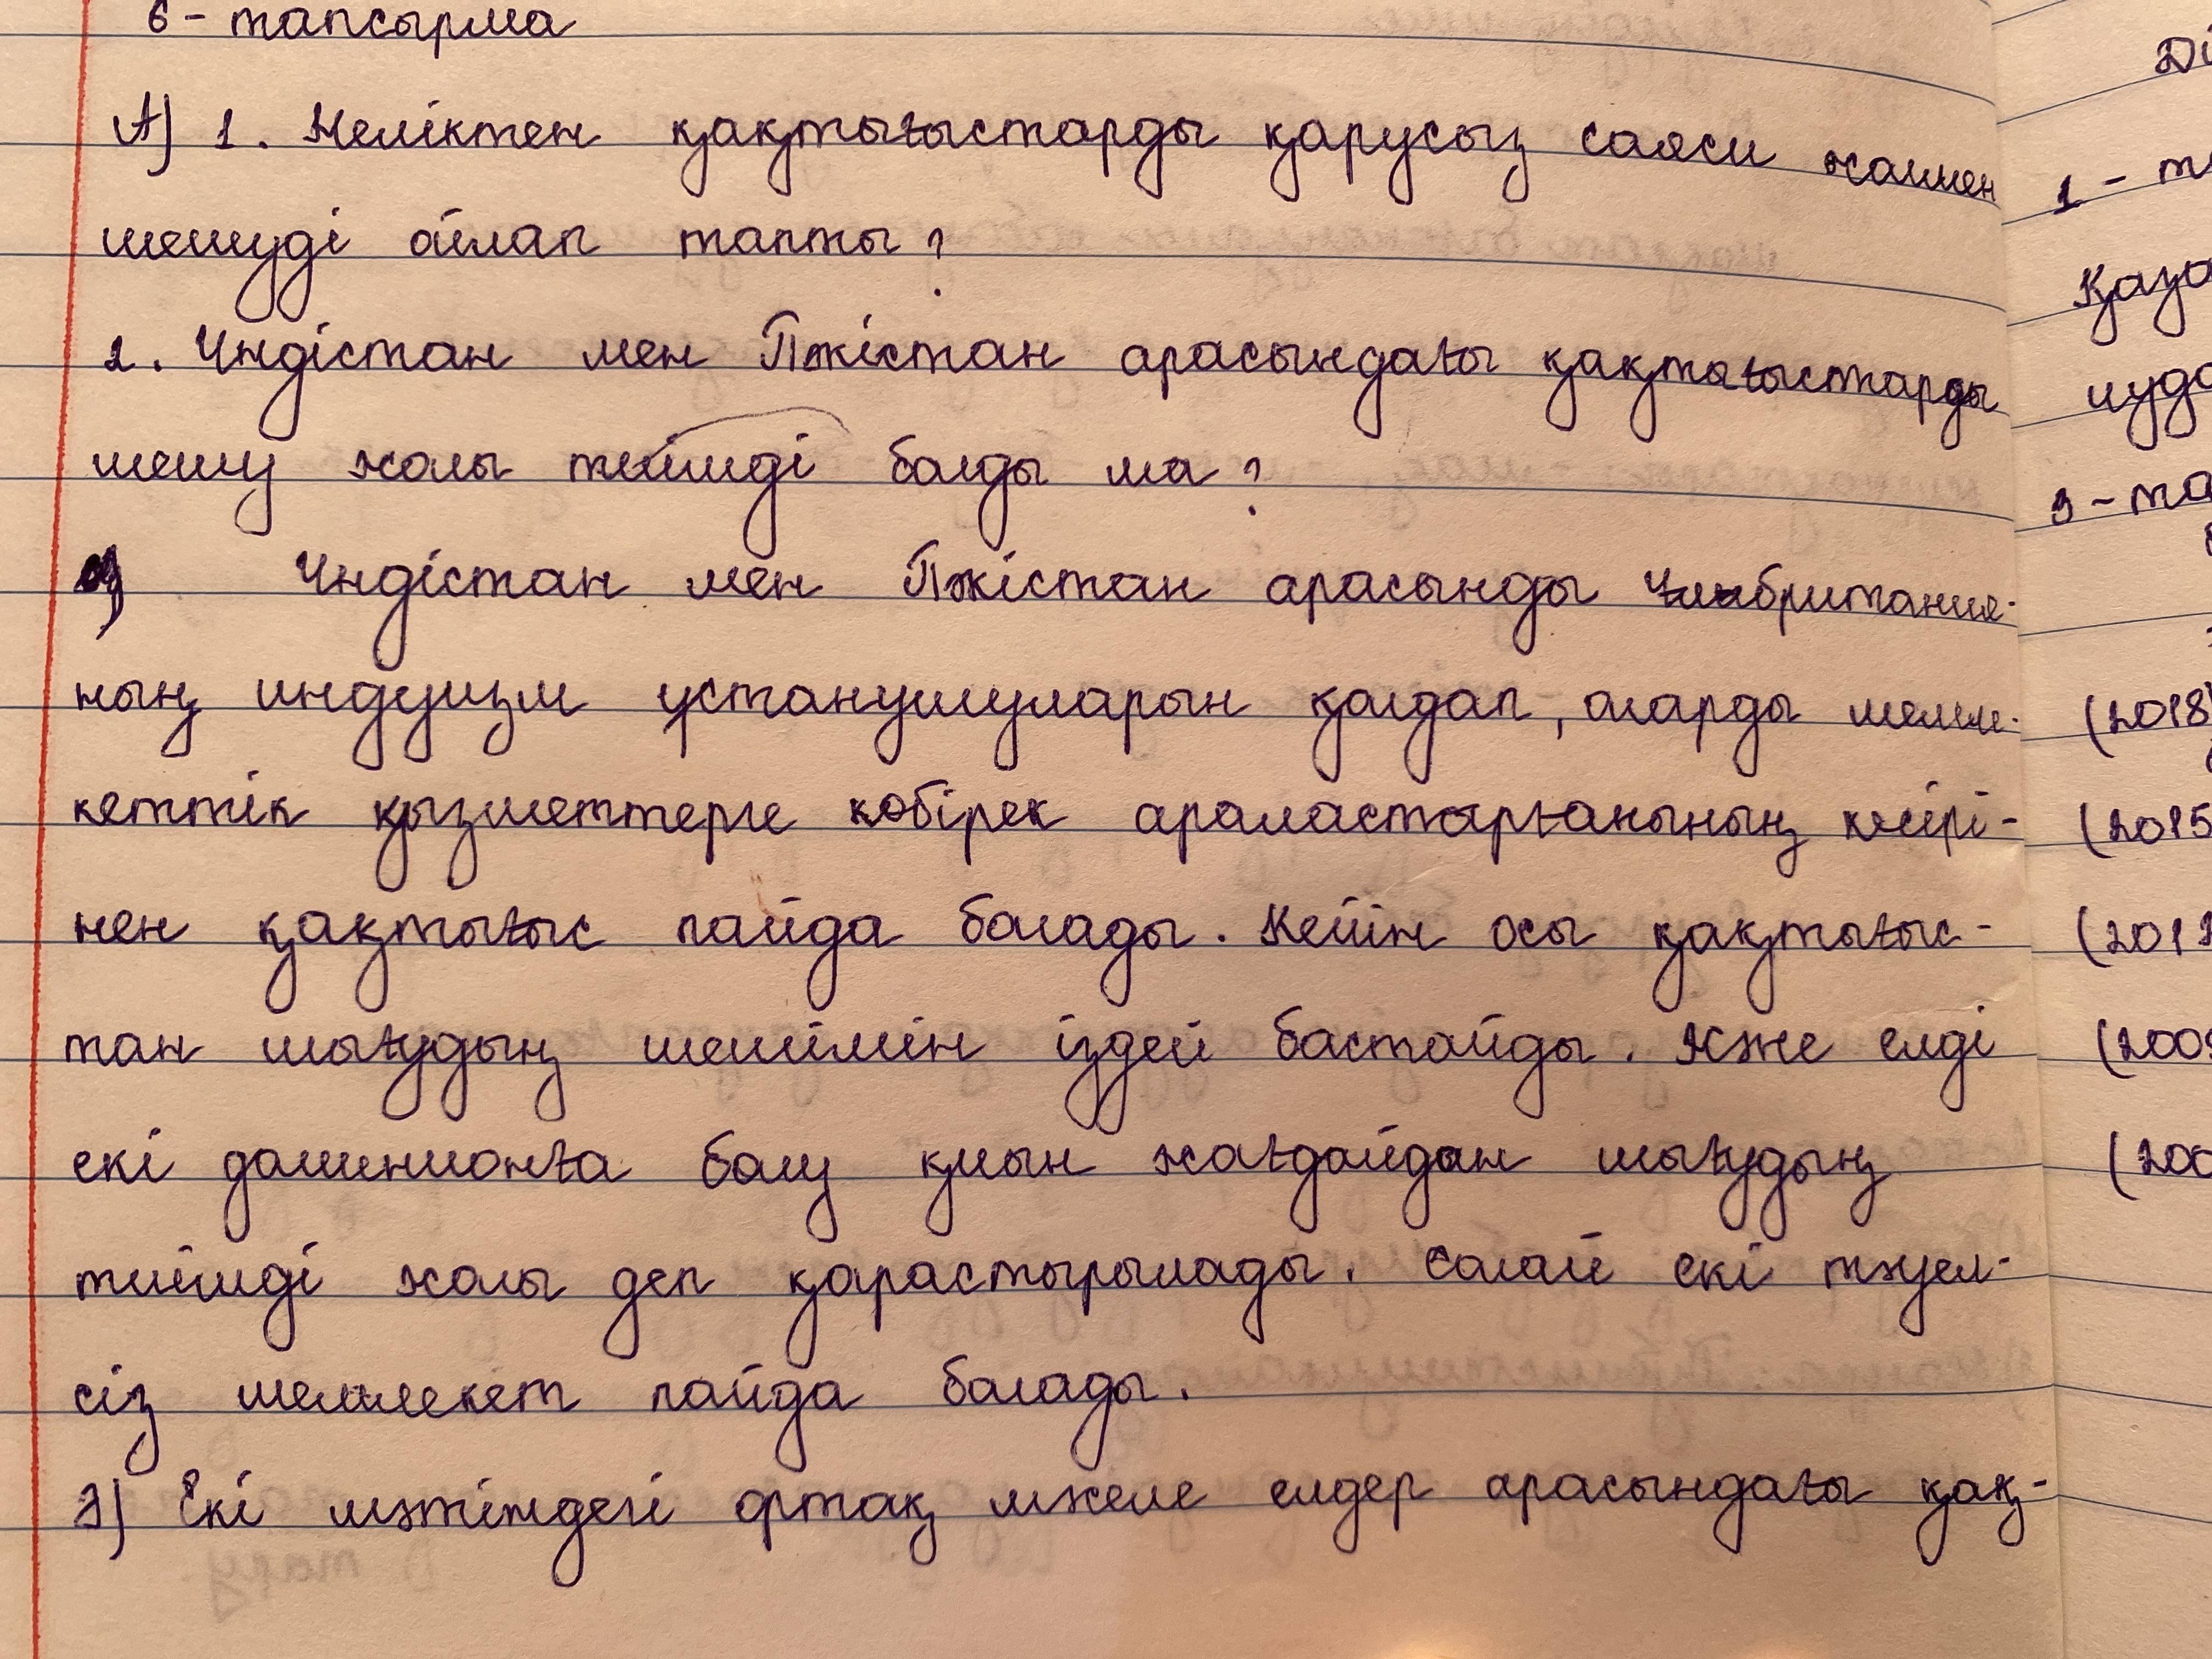 6 - тапсырма
А) 1. Неліктен қақтығыстарды қарусыз саяси жолмен
шешуді ойлап тапты?
2. Үндістан мен Пәкістан арасындағы қақтығыстарды
шешу жолы тиімді болды ма?
Ә) Үндістан мен Пәкістан арасынды Ұлыбритания-
ның индуизм ұстанушуларын қолдап, оларды мемле-
кеттік қызметтерге көбірек араластарғанының кейірі-
нен қақтығыс пайда болады. Кейін осы қақтығыс-
тан шығудың шешімін іздей бастайды. Және елді
екі доминионға бөлу қиын жағдайдан шығудың
тиімді жолы деп қарастырылады. Солай екі тәуел-
сіз мемлекет пайда болады.
Э) Екі мәтіндегі ортақ мәселе елдер арасындағы қақ-
Ді
1 - т
Қаза
3 - та
(2018)
(2015
(201
(2009
(200